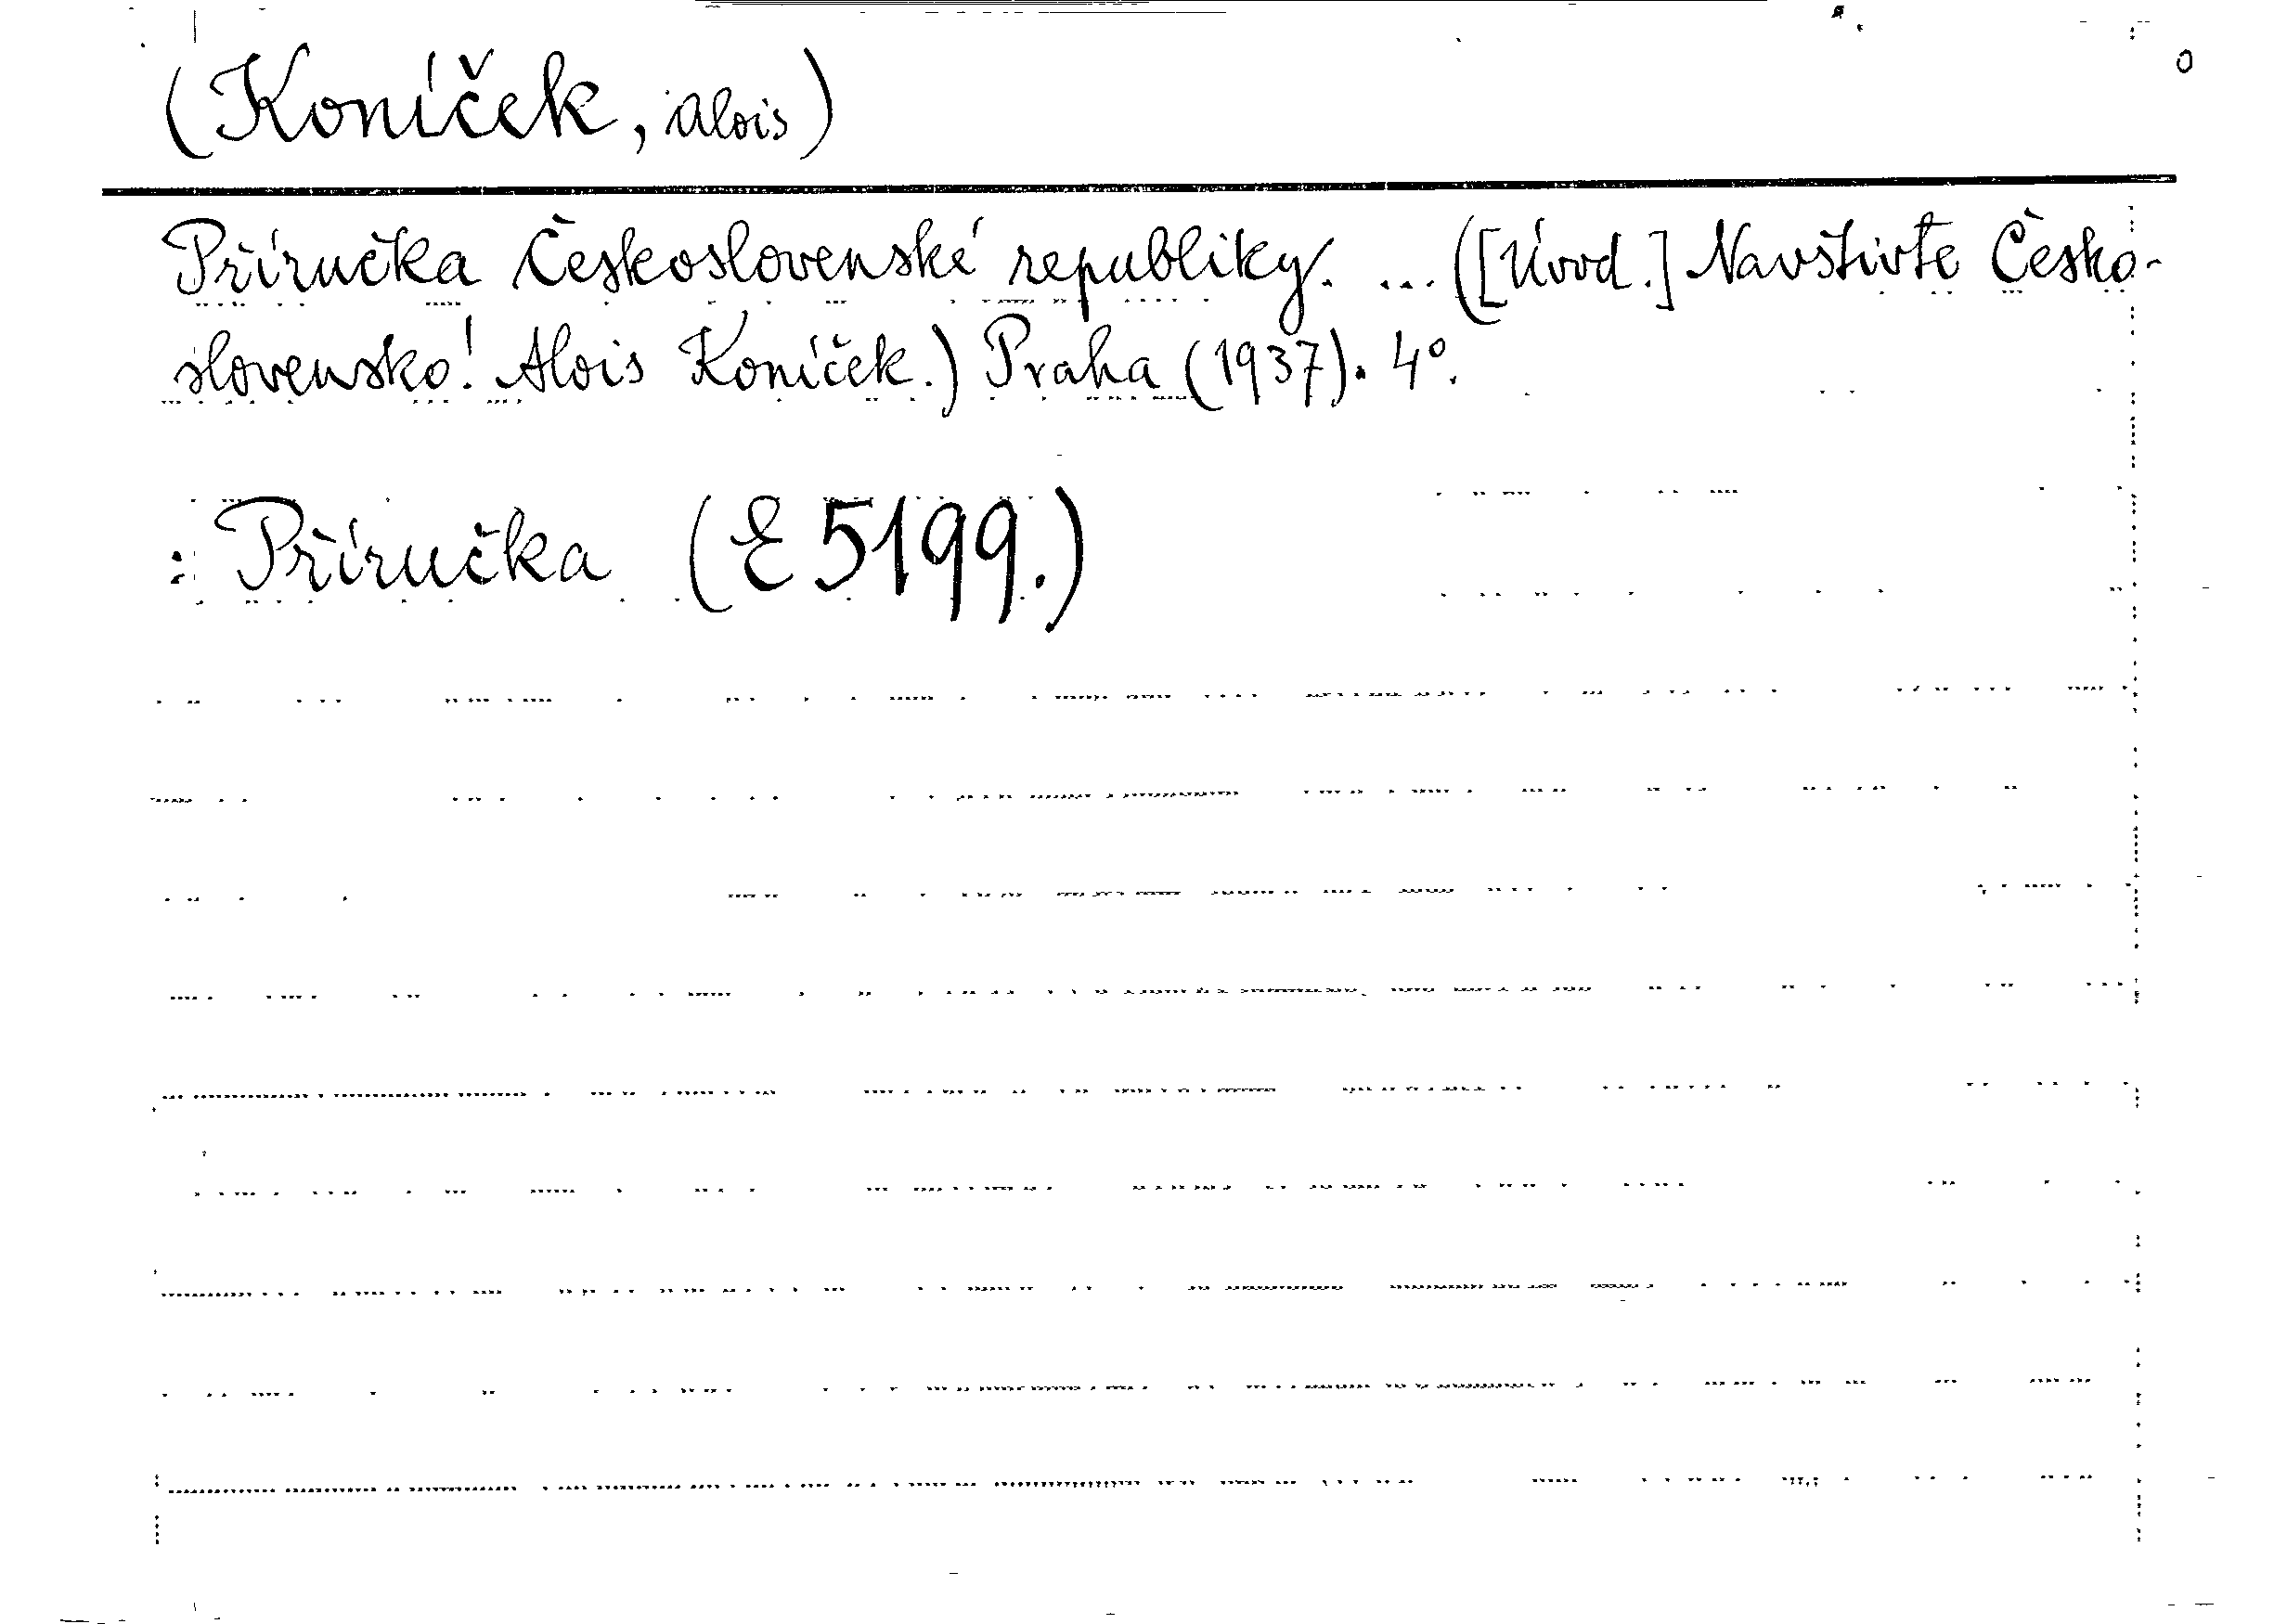 (Koníček, Alois)
Příručka Československé republiky. ... ([Úvod.] Navštivte Česko-
slovensko! Alois Koníček.) Praha (1937). 4°.
: Příručka (E 5199.)